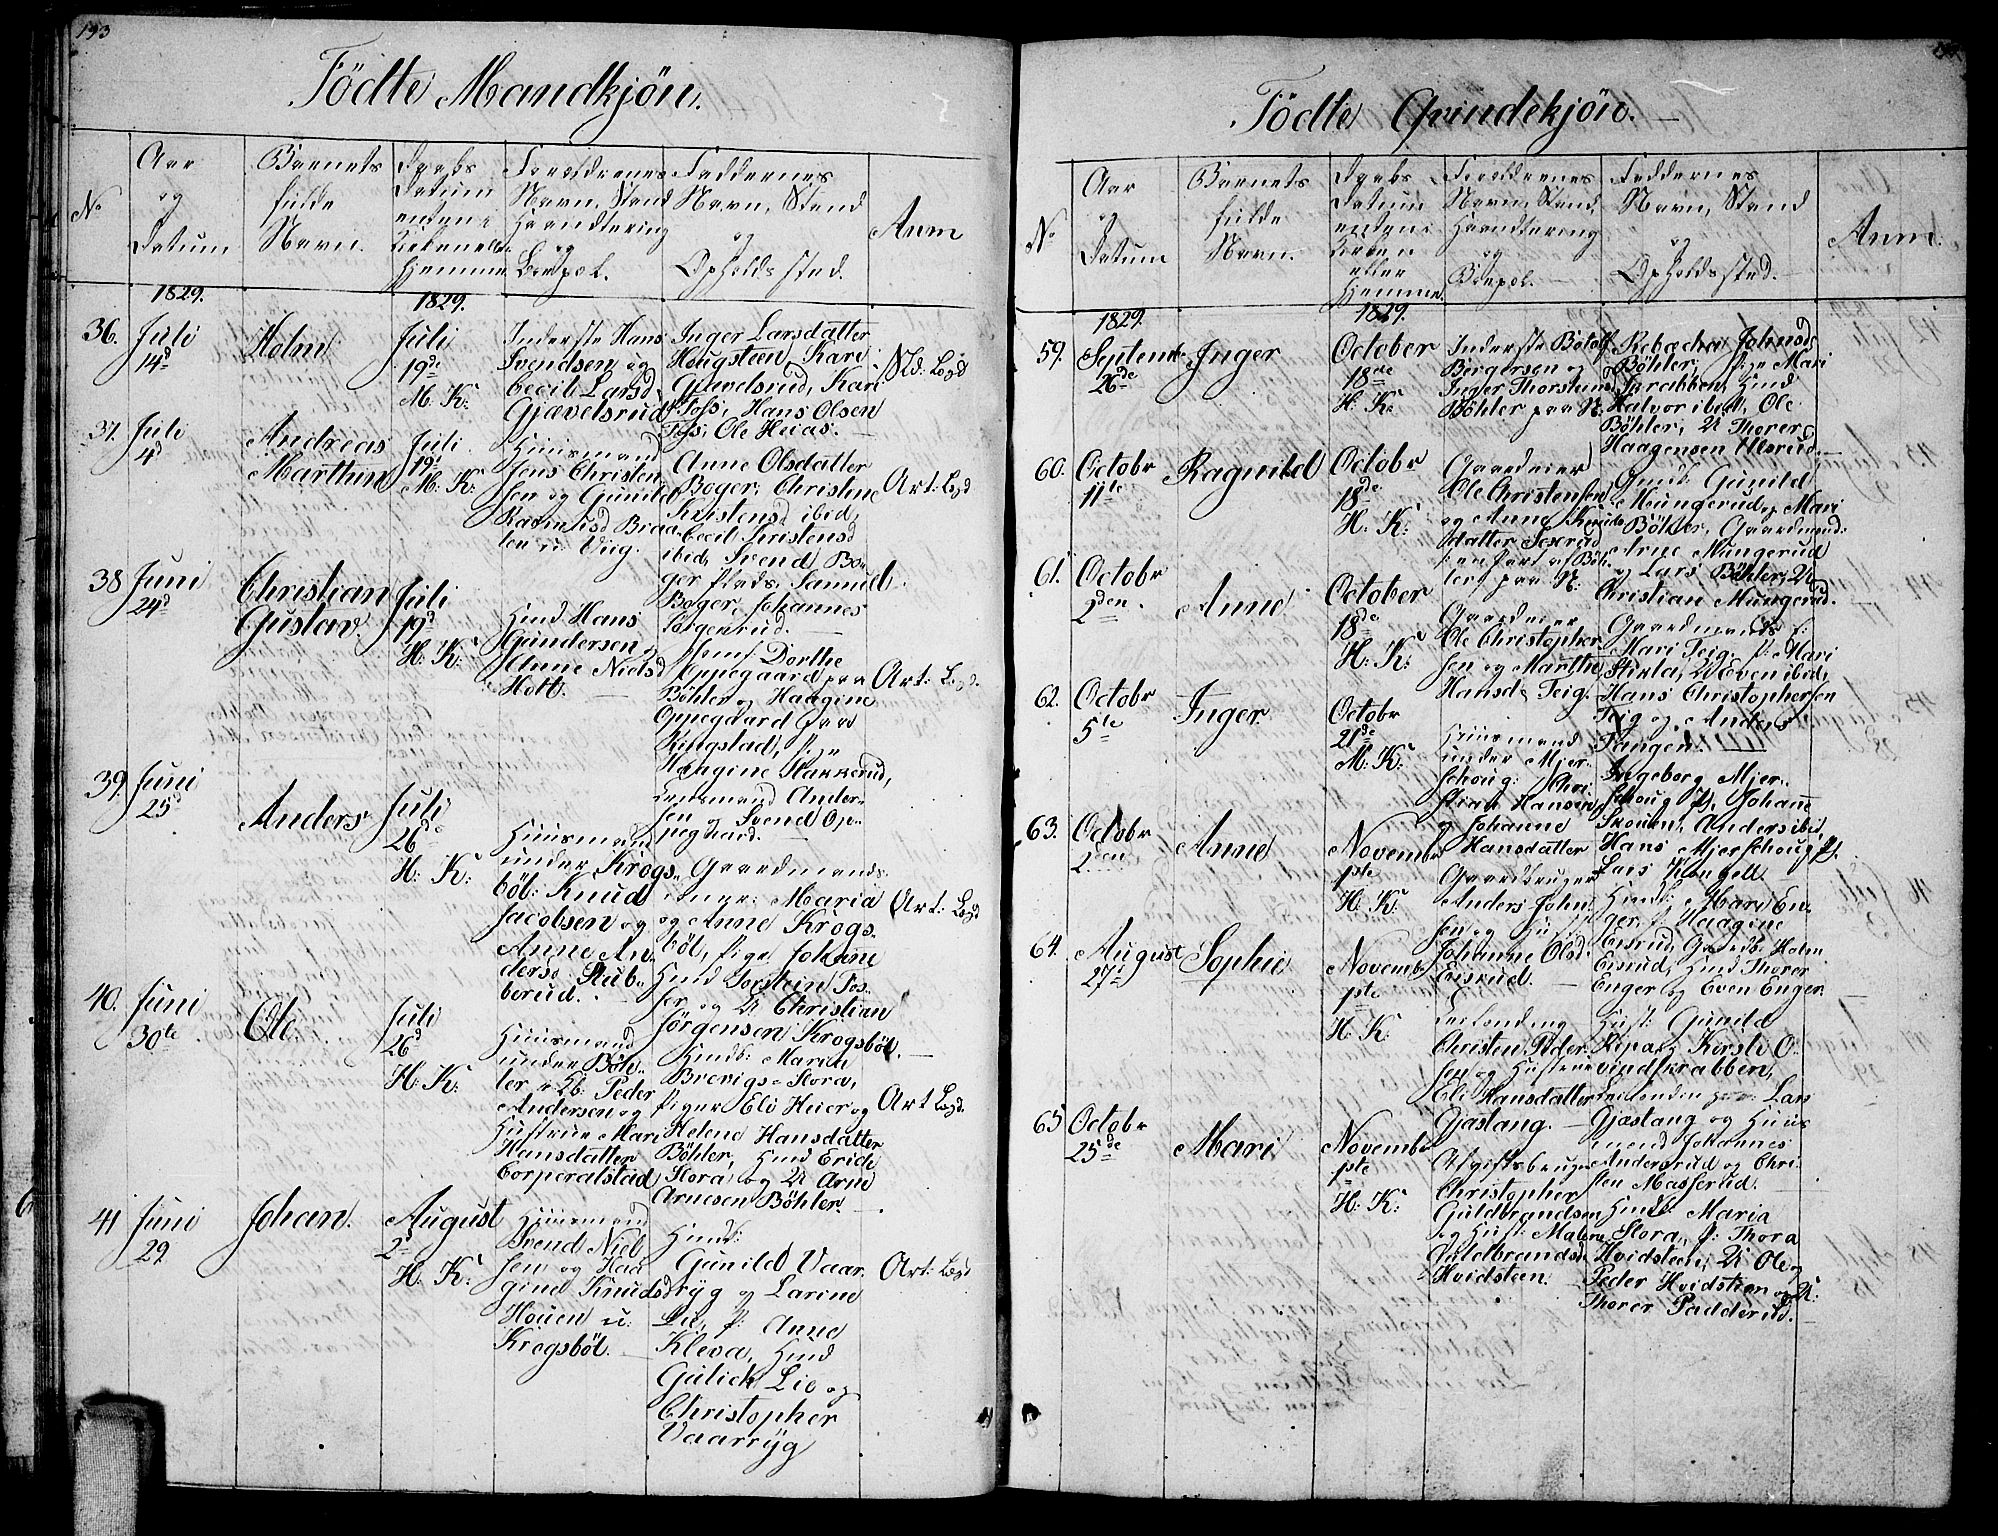 193
Födte Mandkjön.
No
Aar
og
Datum
Barnets
fulde
Navn.
Daabs
Datum
enten i
Kirken ell:
hjemme.
Forældrenes
Navn, Stand
Haandtering
og
Boepæl.
Faddernes
Navn, Stand
og
Opholdssted.
Anm
1829.
1829.
36.
Juli
14d
Holm
Juli
19de
M: K:
Inderste Hans
Svendsen og
Cecil Larsd
Gjævelsrud
Inger Larsdatter
Hougsteen, Kari
Gjævelsrud, Kari
Foss, Hans Olsen
Foss, Ole Heias.
37.
Juli
4d
Andreas
Marthin
Juli
19d
M: K:
Huusmand
Jens Christen
sen og Gunild
Rasmusd Braa
ten u: Viig.
Anne Olsdatter
Boger, Christine
Kristensd ibid,
Cecil Kristensd
ibid, Svend Bo-
ger Plads, Samuel
Boger, Johannes
Art: Lægd
38
Juni
24d
Christian
Gustav.
Juli
19d
H: K:
Hmd Hans
Gundersen
Anne Nielsd
Holt.
Jomf Dorthe
Oppegaard paa
Böhler og Haagine
Oppegaard paa
Ringstad, Pige
Haagine Hakkerud,
Lensmand Ander-
sen og Svend Op-
pegaard.
Art: Lægd.
39.
Juni
25d
Anders
Juli
26d
H: K:
Huusmand
under Krogs-
böl: Knud
Jacobsen og
Anne An-
dersd Stub-
berud.
Gaardmands
Maria
og Anne Krogs-
böl, Pige Johanne
Hmd Torstein Tos-
ser og U Christian
Jörgensen Krogsböl.
Art: Lægd
40.
Juni
30te
Ole
Juli
26d
H: K:
Huusmand
under Böh-
ler Peder
Andersen og
Hustrue Mari
Hansdatter
Corporalstad
Hmdk: Maren
Brevigs-Flora,
Piger Eli Heier og
Helene Hansdatter
Böhler, Hmd Erich
Flora og U Arne
Arnesen Böhler
Art Lægd.
41
Juni
29.
Johan.
August
2d
H: K:
Huusmand
Svend Niel
sen og Haa
gine Knudsd
Houen u:
Krogsböl.
Hmdk:
Gunild Vaar
ryg og Larine
Lie, P: Anne
Kleva, Hmd
Gulich Lie og
Christopher
Vaarryg
Art: Lægd
Födte Qvindekjön.
No
Aar
og
Datum
Barnets
fulde
Navn.
Daabs
Datum
enten i
Kirken
eller
hjemme.
Forældrenes
Navn, Stand,
Haandtering
og
Boepæl.
Faddernes
Navn, Stand
og
Opholdssted.
Anm.
1829.
1829.
59.
Septemb
26de
Inger
October
18de
H: K:
Inderste Botolf
Bergersen og
Inger Thorstensd
Böhler paa N.
Rebecha Johnsd
Böhler, Pige Mari
Skrabben, Hmd
Halvor ibid, Ole
Böhler, U Thorer
Haagensen Ulsrud.
60.
Octobr
11te
Ragnild
Octobr
18de
H: K:
Gaardeier
Ole Christensen
og Anne Knuds
datter Sexerud
i en Part af Böh-
ler paa N.
Gmdk Gunild
Mungerud, Mari
Böhler, Gaardmand
Arne Mungerud
og Lars Böhler, U
Christian Mungerud.
61.
Octobr
2den.
Anne
October
18de
H: K:
Gaardeier
Ole Christopher
sen og Marthe
Hansd Teig.
Gaardmands k:
Mari Teig, P: Mari
Stikla, U Even ibid,
Hans Christophersen
Teig og Anders
Tangen.
62.
Octobr
5te
Inger
Octobr
21de
M: K:
Huusmand
under Mjer
schoug: Chri
stian Hansen
og Johanne
Hansdatter
Ingeborg Mjer-
schoug, Johanne
Skouen, Anders ibid,
Hans Mjerschoug
Lars Kongell
63.
Octobr
2den
Anne
Novembr
1ste
H: K:
Gaardbruger
Anders John
sen og Hust
Johanne Olsd
Eisrud.
Hmdk: Mari En-
ger, P Haagine
Eisrud, Gaardb: Holm
Eisrud, Hmd Thorer
Enger og Even Enger.
64.
August
27d
Sophie
Novemb
1ste
H: K:
Leilænding
Christen Peder
sen og Hustrue
Eli Hansdatter
Gjæstang.
Hust: Gunild
Ripa og Kirsti O-
vindskrabben,
Leilænding Lars
Gjæstang og Huus
mand Johannes
Andersrud og Chri
sten Masserud.
65
Octobr
25de
Mari
Novembr
1ste
H: K:
Afgiftsbruger
Christopher
Guldbrandsen
og Hust: Malene
Guldbrandsd
Hvidsteen.
Hmdk: Maria
Flora, P: Thora
Hvidsteen, U: Ole og
Peder Hvidsteen og U:
Thorer Padderud.